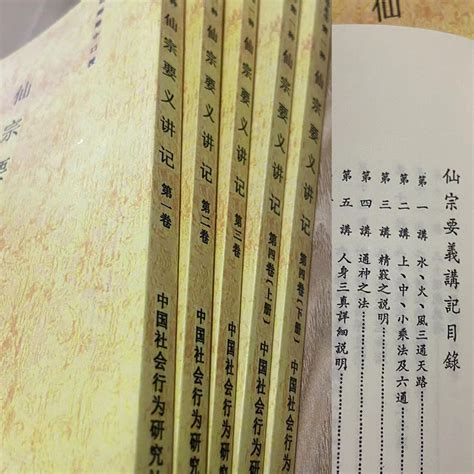 仙宗要
仙宗要义讲记 第一卷 中国社会行为研究
仙宗要义讲记 第二卷 中国社会行为研究
仙宗要义讲记 第三卷 中国社会行为研究
仙宗要义讲记 第四卷（上册） 中国社会行为研究
仙宗要义讲记 第四卷（下册） 中国社会行为研究
仙
仙宗要義講記目錄
第一講 水、火、風三通天路………
第二講 上、中、小乘法及六通………
第三講 精竅之説明………
第四講 通神之法………
第五講 人身三真詳細説明………